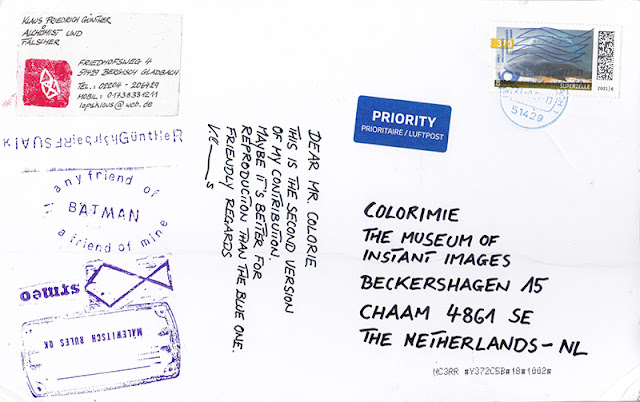 KLAUS FRIEDRICH GÜNTHER
ALCHÉMIST UND
FÄLSCHER
FRIEDHOFSWEG 4
51429 BERGISCH GLADBACH
TEL.: 02204 - 206929
MOBIL: 01738331211
lapsklaus@web.de
any friend of
BATMAN
is a friend of mine
symeo
MALEWITSCH RULES OK
DEAR MR. COLORIE
THIS IS THE SECOND VERSION
OF MY CONTRIBUTION.
MAYBE IT'S BETTER FOR
REPRODUCTION THAN THE BLUE ONE.
FRIENDLY REGARDS
PRIORITY
PRIORITAIRE / LUFTPOST
370
SUPERZELLE
2021
51429
COLORIMIE
THE MUSEUM OF
INSTANT IMAGES
BECKERSHAGEN 15
CHAAM 4861 SE
THE NETHERLANDS - NL
MC3RR #Y372C5B#18#1002#